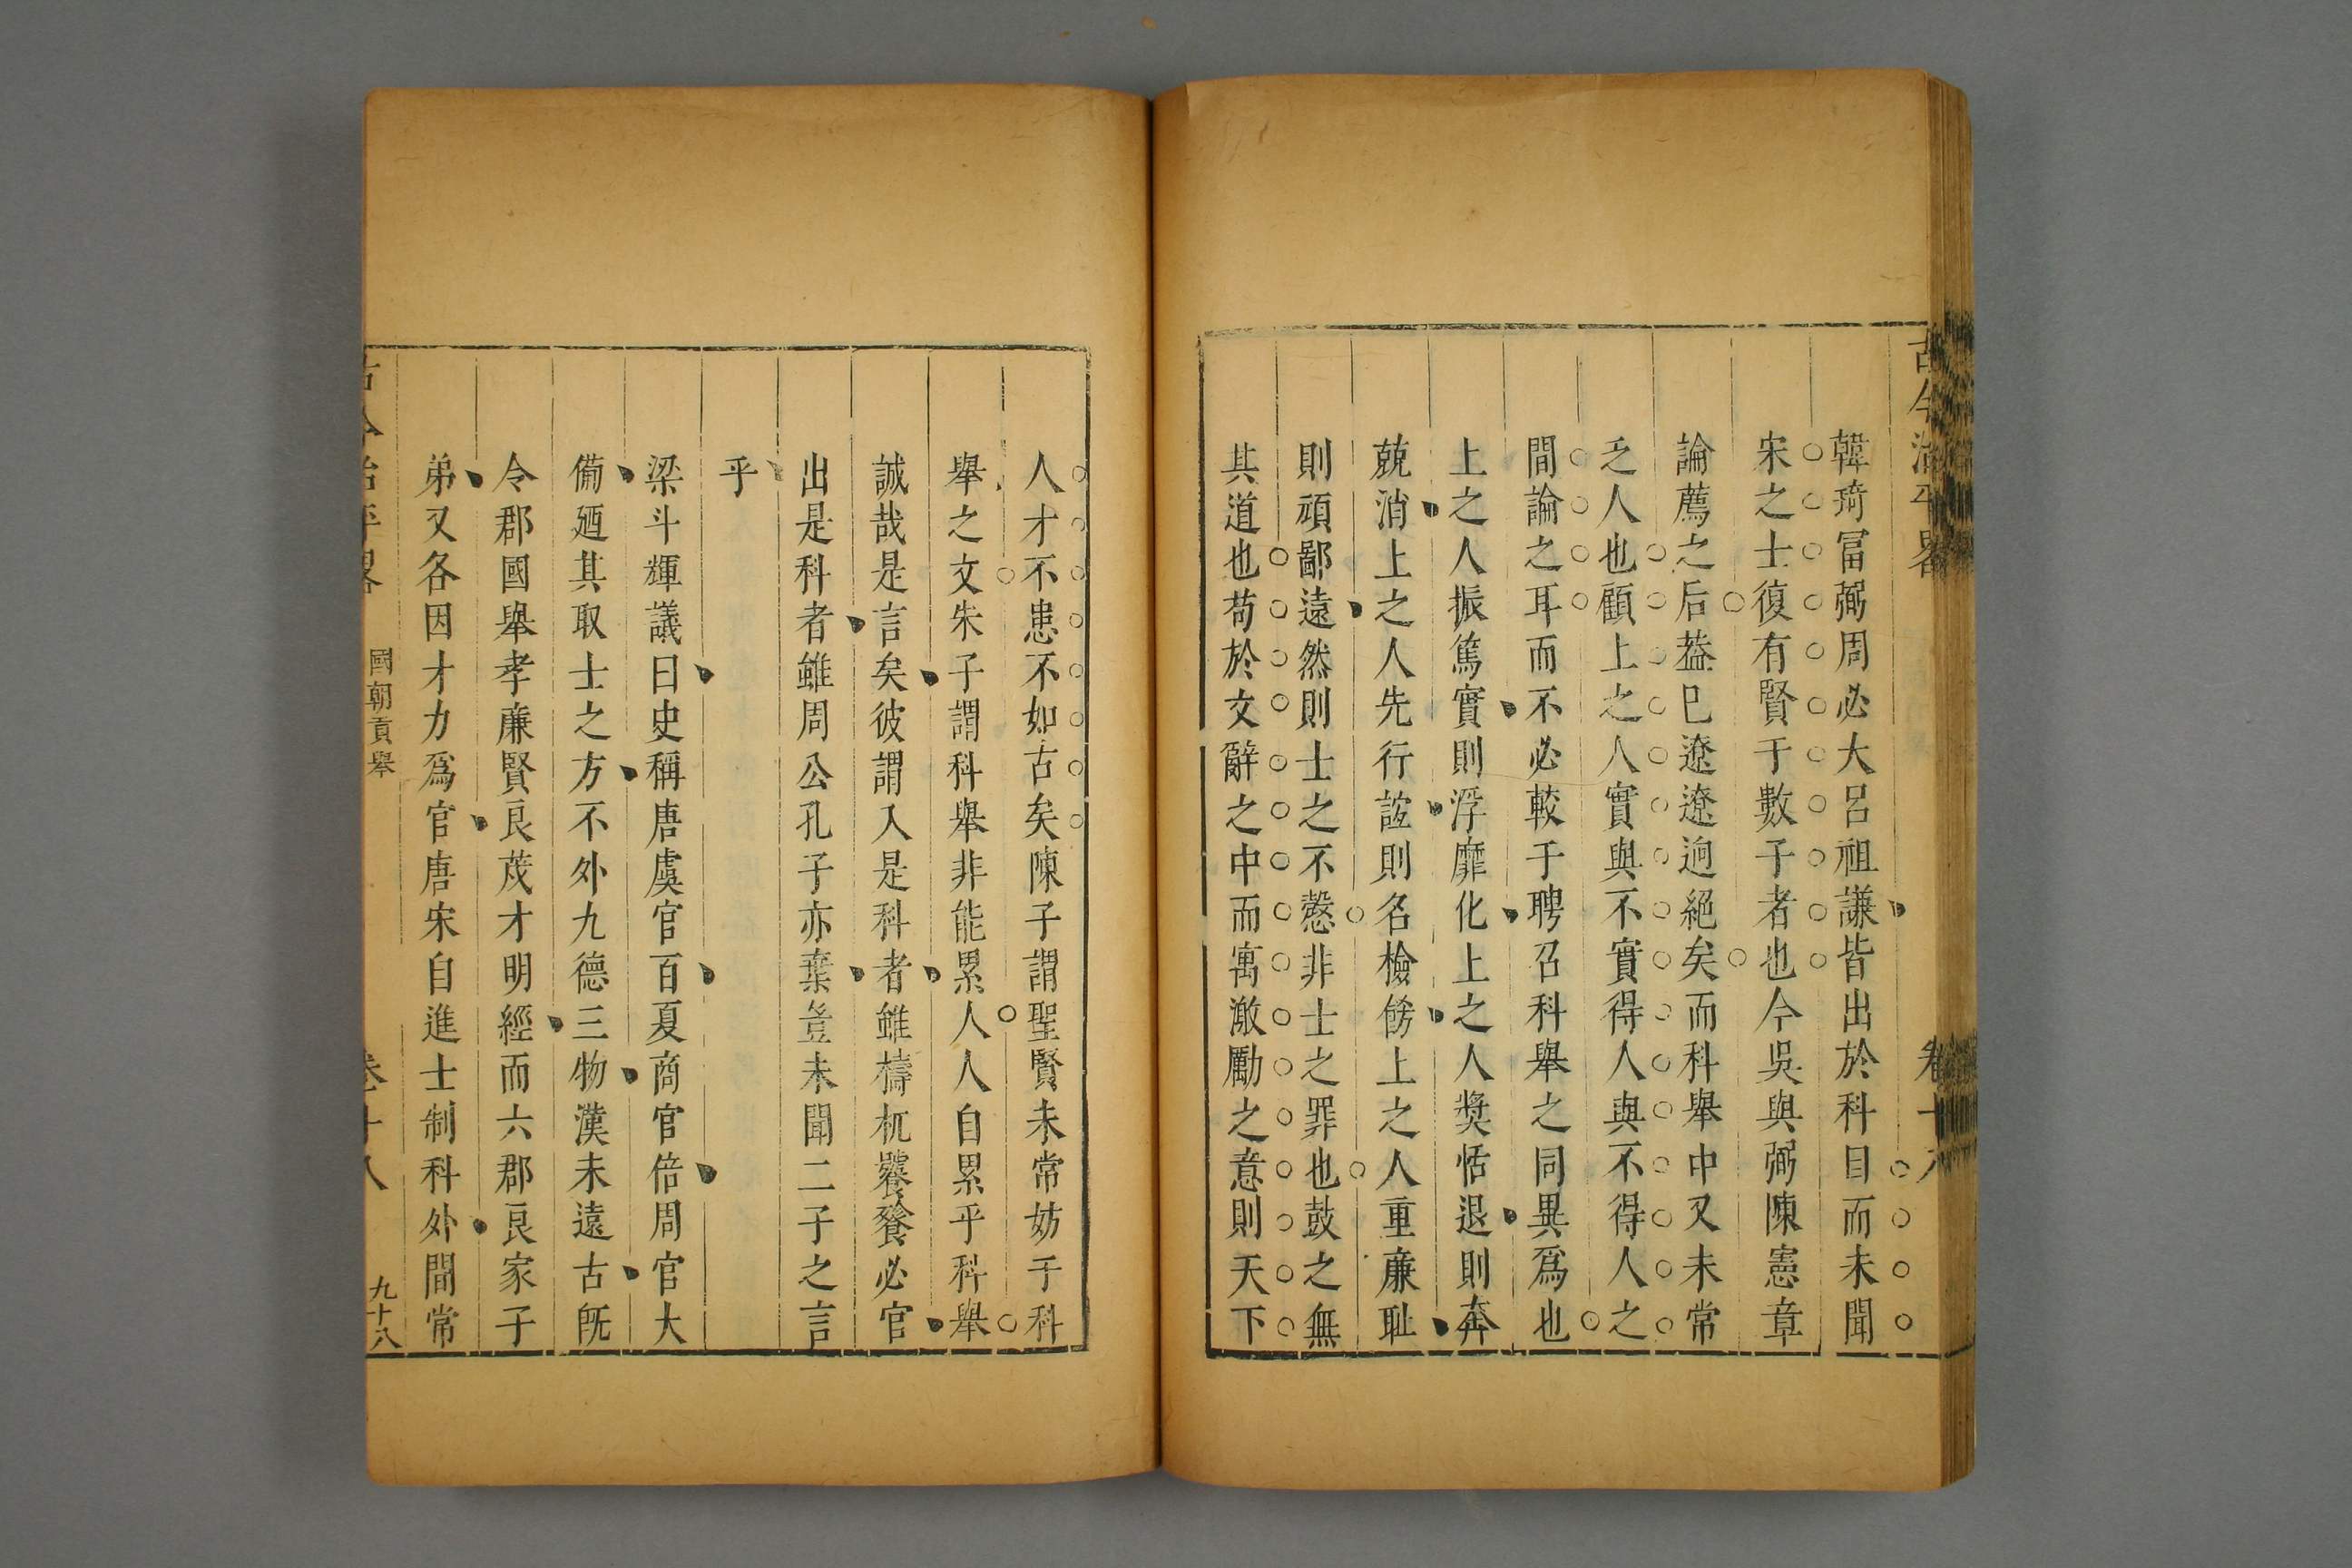 古今治平畧
卷十八
韓琦冨弼周必大呂祖謙皆出於科目而未聞
宋之士復有賢于數子者也今吳與弼陳憲章
論薦之后葢巳遼遼逈絕矣而科舉中又未常
乏人也顧上之人實與不實得人與不得人之
間論之耳而不必較于聘召科舉之同異爲也
上之人振篤實則浮靡化上之人奬恬退則奔
兢消上之人先行誼則名檢傍上之人重亷耻
則頑鄙遠然則士之不慤非士之罪也鼓之無
其道也苟於文辭之中而寓激勵之意則天下
人才不患不如古矣陳子謂聖賢未常妨于科
舉之文朱子謂科舉非能累人人自累乎科舉
誠哉是言矣彼謂入是科者雖檮杌饕餮必官
出是科者雖周公孔子亦棄豈未聞二子之言
乎
梁斗輝議曰史稱唐虞官百夏商官倍周官大
備廼其取士之方不外九德三物漢未遠古旣
令郡國舉孝亷賢良茂才明經而六郡良家子
弟又各因才力爲官唐宋自進士制科外間常
古今治平畧
國朝貢舉
卷十八
九十八